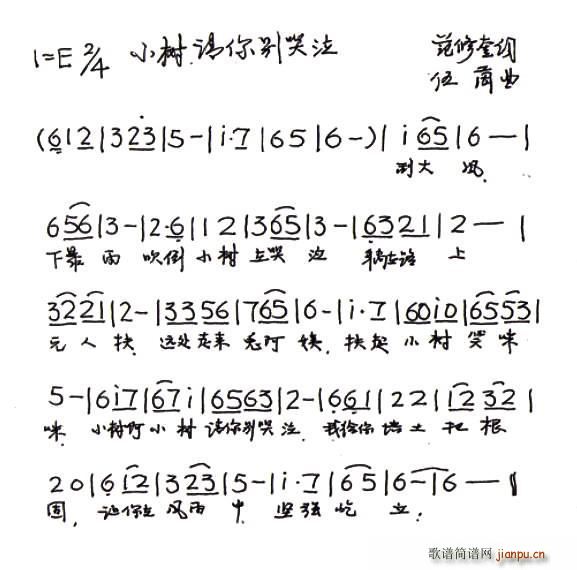 1=E 2/4 小树请你别哭泣
范修奎词
伍 曲
(6 1 2 | 3 2 3 | 5 - | i · 7 | 6 5 | 6 - ) | i 6 5 | 6 — |
刮大 风
6 5 6 | 3 - | 2 · 6 | 1 2 | 3 6 5 | 3 - | 6 3 2 1 | 2 — |
下暴 雨 吹倒 小树 在哭 泣 躺在路 上
3 2 2 1 | 2 - | 3 3 5 6 | 7 6 5 | 6 - | i · 7 | 6 0 i 0 | 6 5 5 3 |
无 人 扶 远处走来 阿 姨 扶起 小树 笑 咪
5 - | 6 i 7 | 6 7 i | 6 5 6 3 | 2 - | 6 6 1 | 2 2 | 1 2 3 2 |
咪 小树呀 小 树 请你别哭 泣 我给你 培土 把 根
2 0 | 6 1 2 | 3 2 3 | 5 - | i · 7 | 6 5 | 6 - | 6 — ||
固 让你在 风雨 中 坚强 屹 立.
歌谱简谱网
jianpu.cn